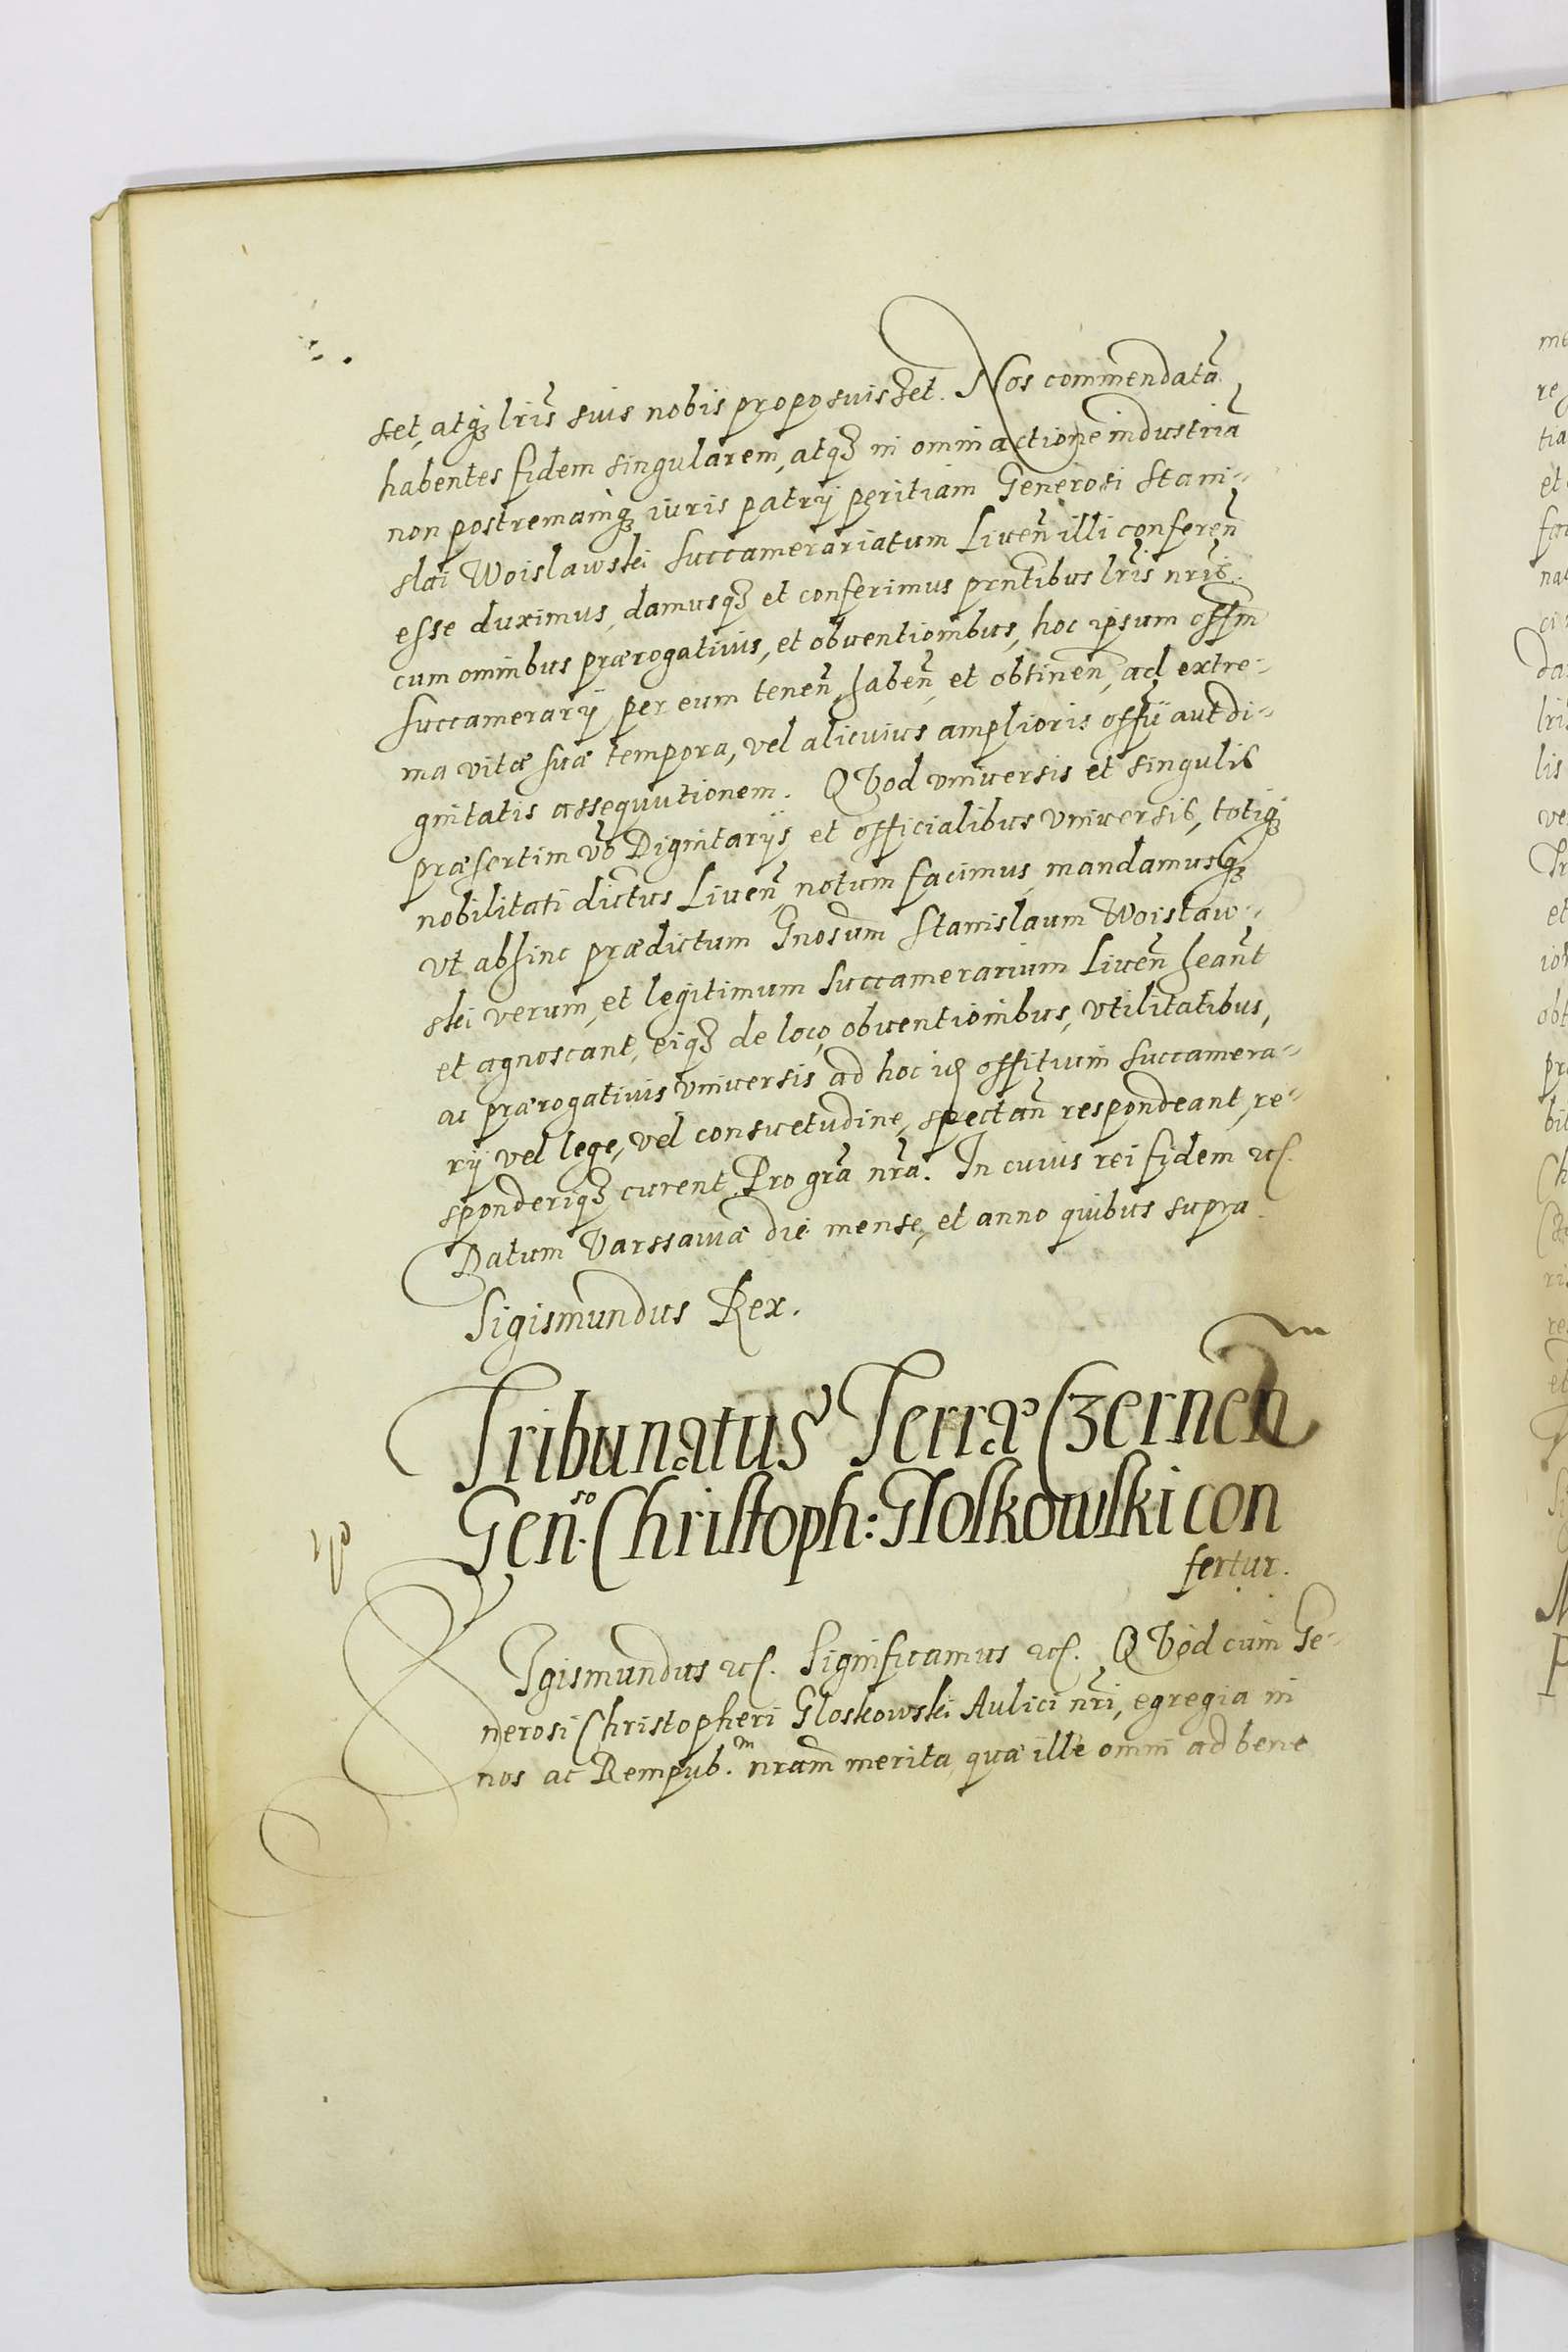 set, atq3 lris suis nobis proposuisset. Nos commendatã
habentes fidem singularem, atq3 in omni actione industriã
non postremamq3 iuris patrij peritiam Generosi Stani-
slai Woislawski Succamerariatum Liuen̄ illi conferen̄
esse duximus, damusq3 et conferimus prntibus lris nris.
cum omnibus prærogatiuis, et obuentionibus, hoc ipsum offm
Succamerarij per eum tenen̄, haben̄, et obtinen̄, ad extre-
ma vitæ suæ tempora, vel alicuius amplioris offii aut di-
gnitatis assequutionem. QVod vniuersis et singulis
præsertim vō Dignitarijs et officialibus vniuersis, totiq3
nobilitati dictus Liuen̄ notum facimus, mandamusq3
vt abhinc prædictum Gnosum Stanislaum Woislaw-
ski verum, et legitimum Succamerarium Liuen̄ heant
et agnoscant, eiq3 de loco, obuentionibus, vtilitatibus,
ac prærogatiuis vniuersis ad hoc id offitium Succamera-
rij vel lege, vel consuetudine, spectan̄ respondeant, re-
sponderiq3 curent Pro gra nra. In cuius rei fidem etc.
Datum Varssauiæ die mense, et anno quibus supra.
Sigismundus Rex.
Tribunatus Terræ Czernen̄
Gen.so Christoph: Gloskowski con
fertur.
SIgismundus etc. Significamus etc. QVod cum Ge-
nerosi Christopheri Gloskowski Aulici nri, egregia in
nos ac Rempub.m nram merita, quæ ille omni ad bene